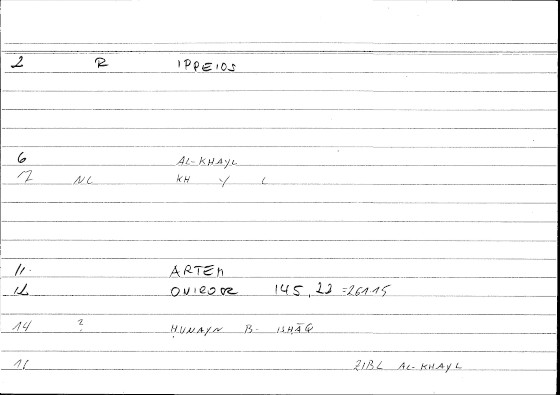 2 R IPPEIOS
6 AL-KHAYL
7 NL KH Y L
11. ARTEM
12 ONIROCR 145,22 =261.15
14 ? ḤUNAYN B. ISḤĀQ
ZIBL AL-KHAYL